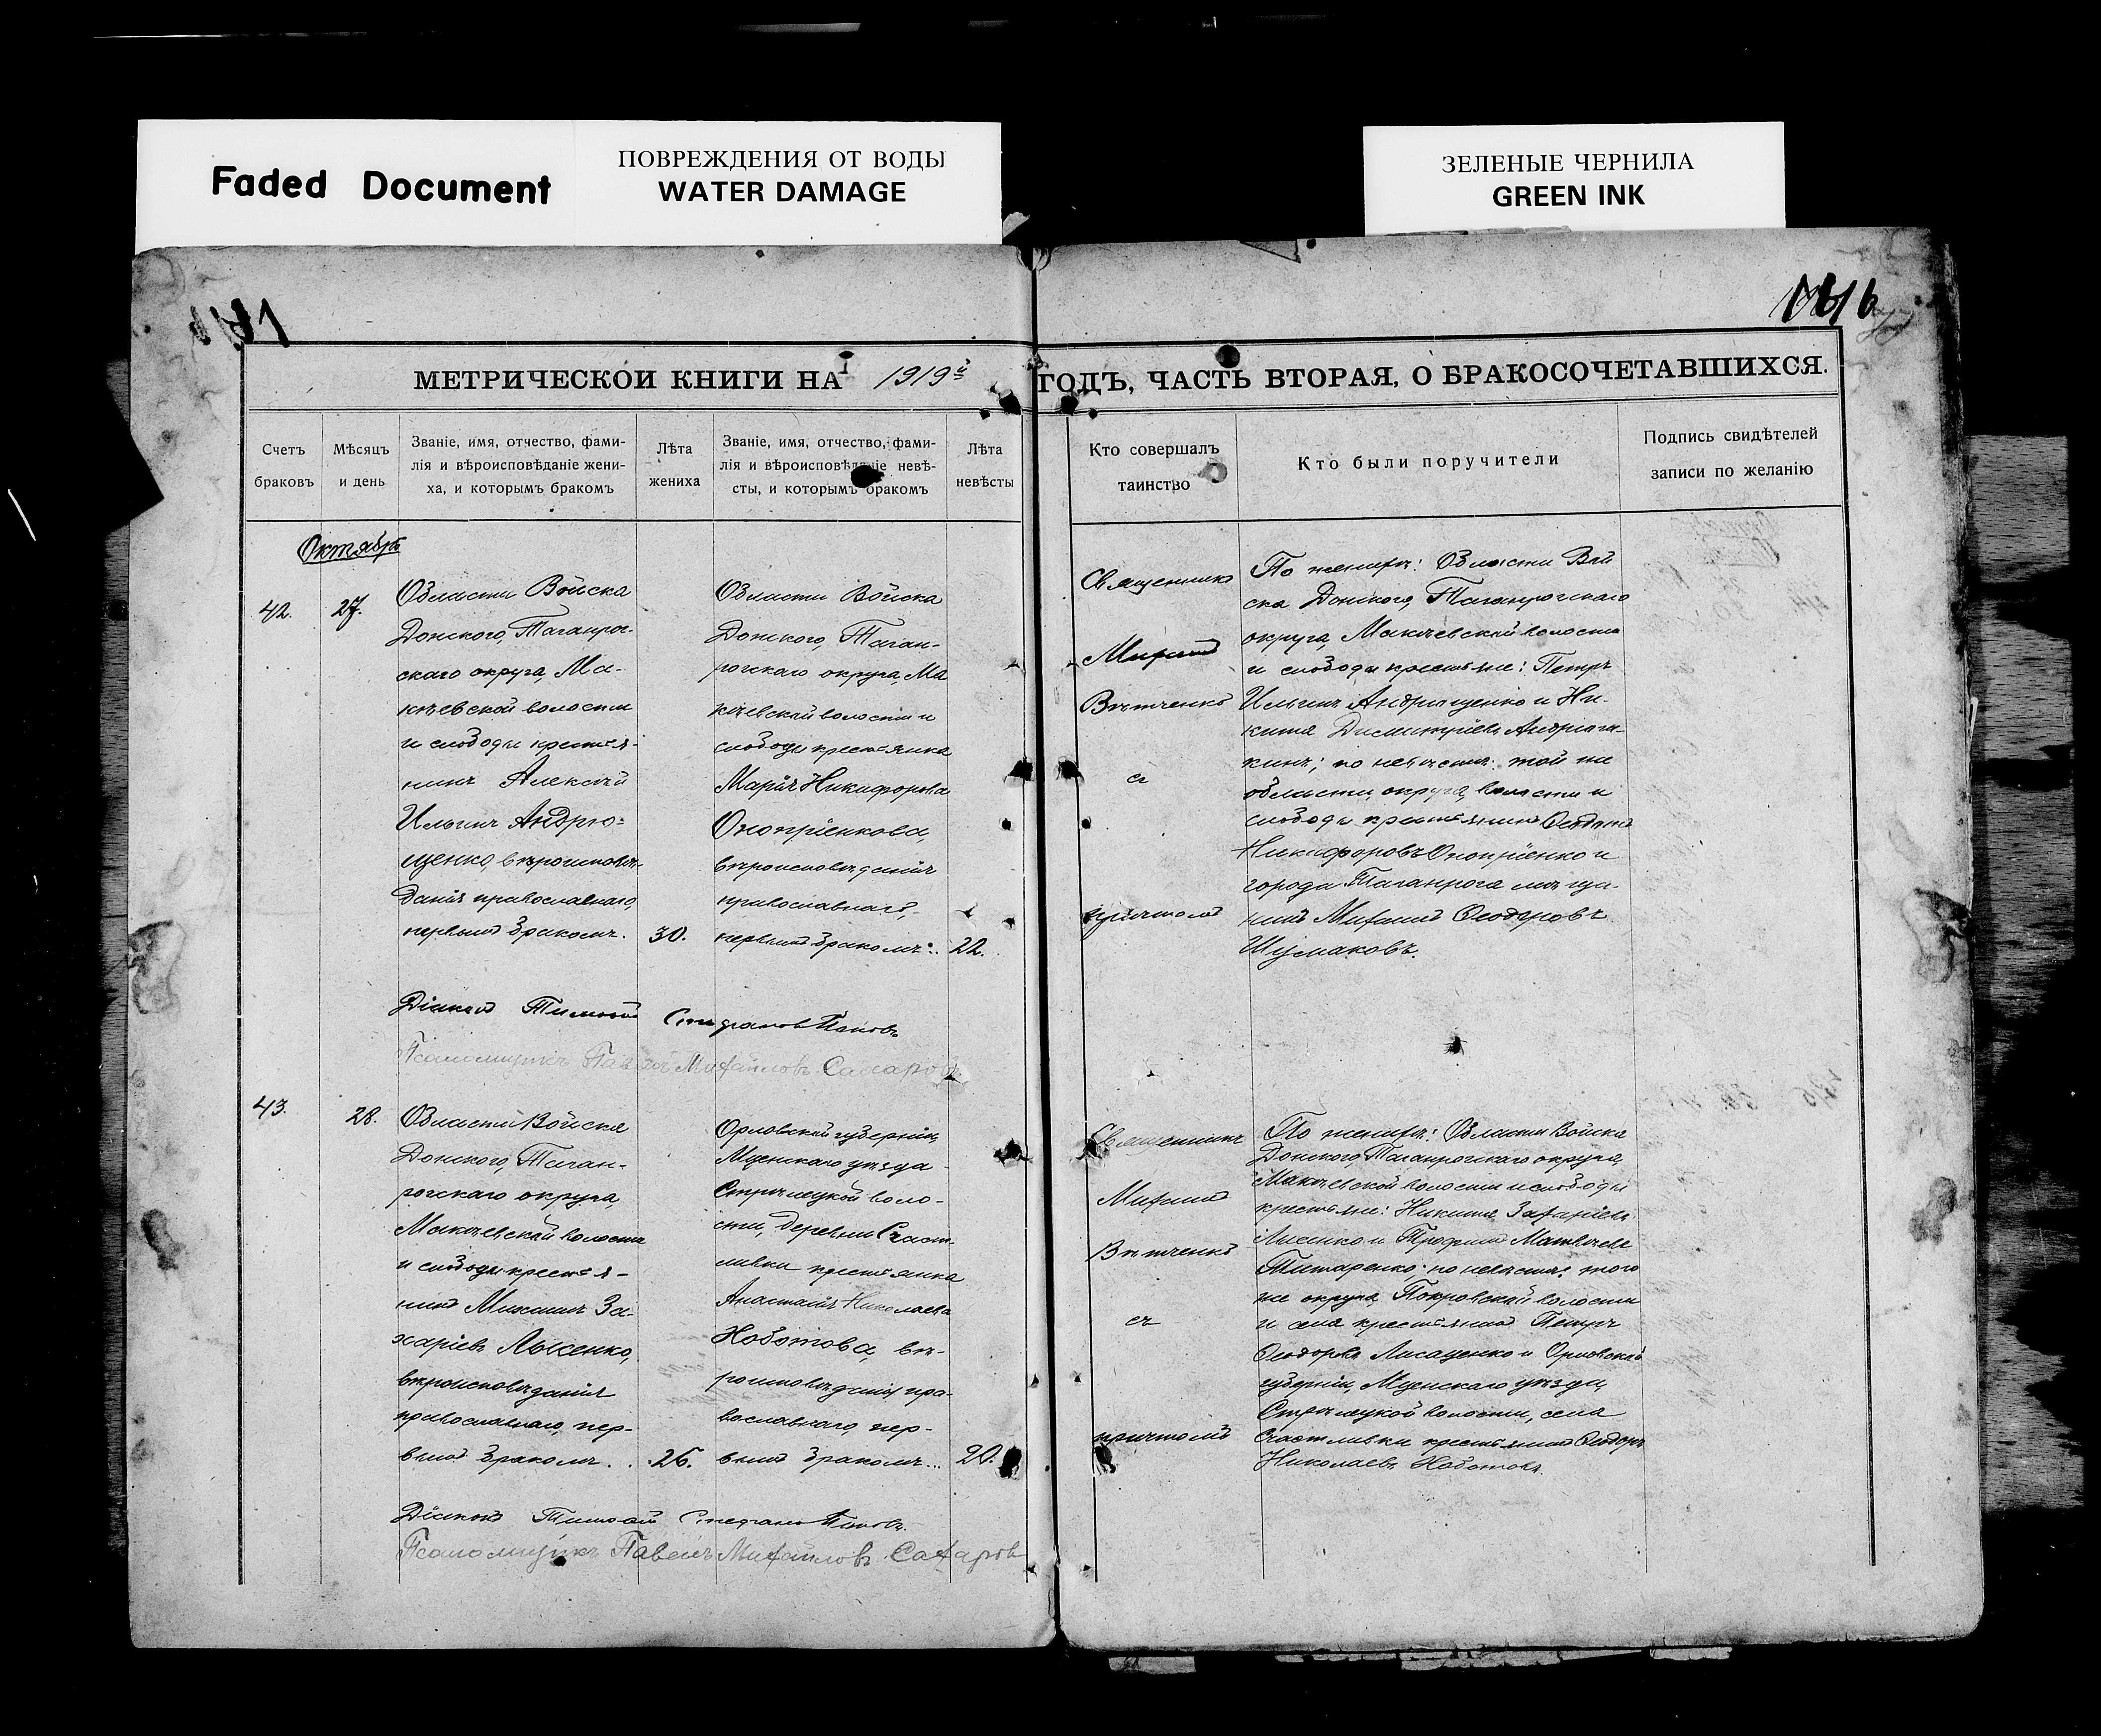 Faded Document
ПОВРЕЖДЕНИЯ ОТ ВОДЫ
WATER DAMAGE
ЗЕЛЕНЫЕ ЧЕРНИЛА
GREEN INK
МЕТРИЧЕСКОЙ КНИГИ НА 1919й
ГОДЪ, ЧАСТЬ ВТОРАЯ, О БРАКОСОЧЕТАВШИХСЯ.
Счетъ
браковъ
Мѣсяцъ
и день
Званіе, имя, отчество, фами-
лія и вѣроисповѣданіе жени-
ха, и которымъ бракомъ
Лѣта
жениха
Званіе, имя, отчество, фами-
лія и вѣроисповѣданіе невѣ-
сты, и которымъ бракомъ
Лѣта
невѣсты
Кто совершалъ
таинство
Кто были поручители
Подпись свидѣтелей
записи по желанію
Октябрь
42.
27.
Области Войска
Донского, Таганрог-
скаго округа, Ма-
кѣевской волости
и слободы крестья-
нинъ Алексѣй
Ильинъ Андрю-
щенко, вѣроисповѣ-
данія православнаго,
первымъ бракомъ.
30.
Области Войска
Донского, Таган-
рогскаго округа, Ма
кѣевской волости и
слободы крестьянка
Марія Никифорова
Оноприенкова,
вѣроисповѣданія
православнаго,
первымъ бракомъ.
22.
Священникъ
Михаилъ
Вѣтченко
съ
причтомъ
По женихѣ: Области Вой
ска Донского, Таганрогскаго
округа, Макѣевской волости
и слободы крестьяне: Петръ
Ильинъ Андрющенко и Ни-
кита Димитріевъ
по невѣстѣ: той же
области, округа, волости и
слободы крестьянинъ
Никифоровъ Оноприенко и
города Таганрога мѣща-
нинъ Михаилъ Ѳеодоровъ
Шумаковъ.
Діаконъ Тимоѳей Стефановъ Поповъ
Псаломщикъ Павелъ Михайловъ Сахаровъ
43.
28.
Области Войска
Донского, Таган-
рогскаго округа,
Макѣевской волости
и слободы крестья-
нинъ За-
харіевъ Лысенко,
вѣроисповѣданія
православнаго, пер-
вымъ бракомъ.
26.
Орловской губерніи,
Мценскаго уѣзда
Стрѣлецкой воло-
сти, деревни Счаст-
ливки крестьянка
Анастасія Николаева
Хоботова, вѣ-
роисповѣданія пра-
вославнаго, пер-
вымъ бракомъ...
20.
Священникъ
Михаилъ
Вѣтченко
съ
причтомъ
По женихѣ: Области Войска
Донского, Таганрогскаго округа,
Макѣевской волости и слободы
крестьяне: Никита Захаріевъ
Лысенко и Трофимъ Матвѣевъ
Титаренко; по невѣстѣ: того
же округа, Покровской волости
и села крестьянинъ Петръ
Ѳеодоровъ и Орловской
губерніи, Мценскаго уѣзда,
Стрѣлецкой волости, села
Счастливки крестьянинъ Ѳеодоръ
Николаевъ Хоботовъ.
Діаконъ Тимоѳей Стефановъ Поповъ.
Псаломщикъ Павелъ Михайловъ Сахаровъ